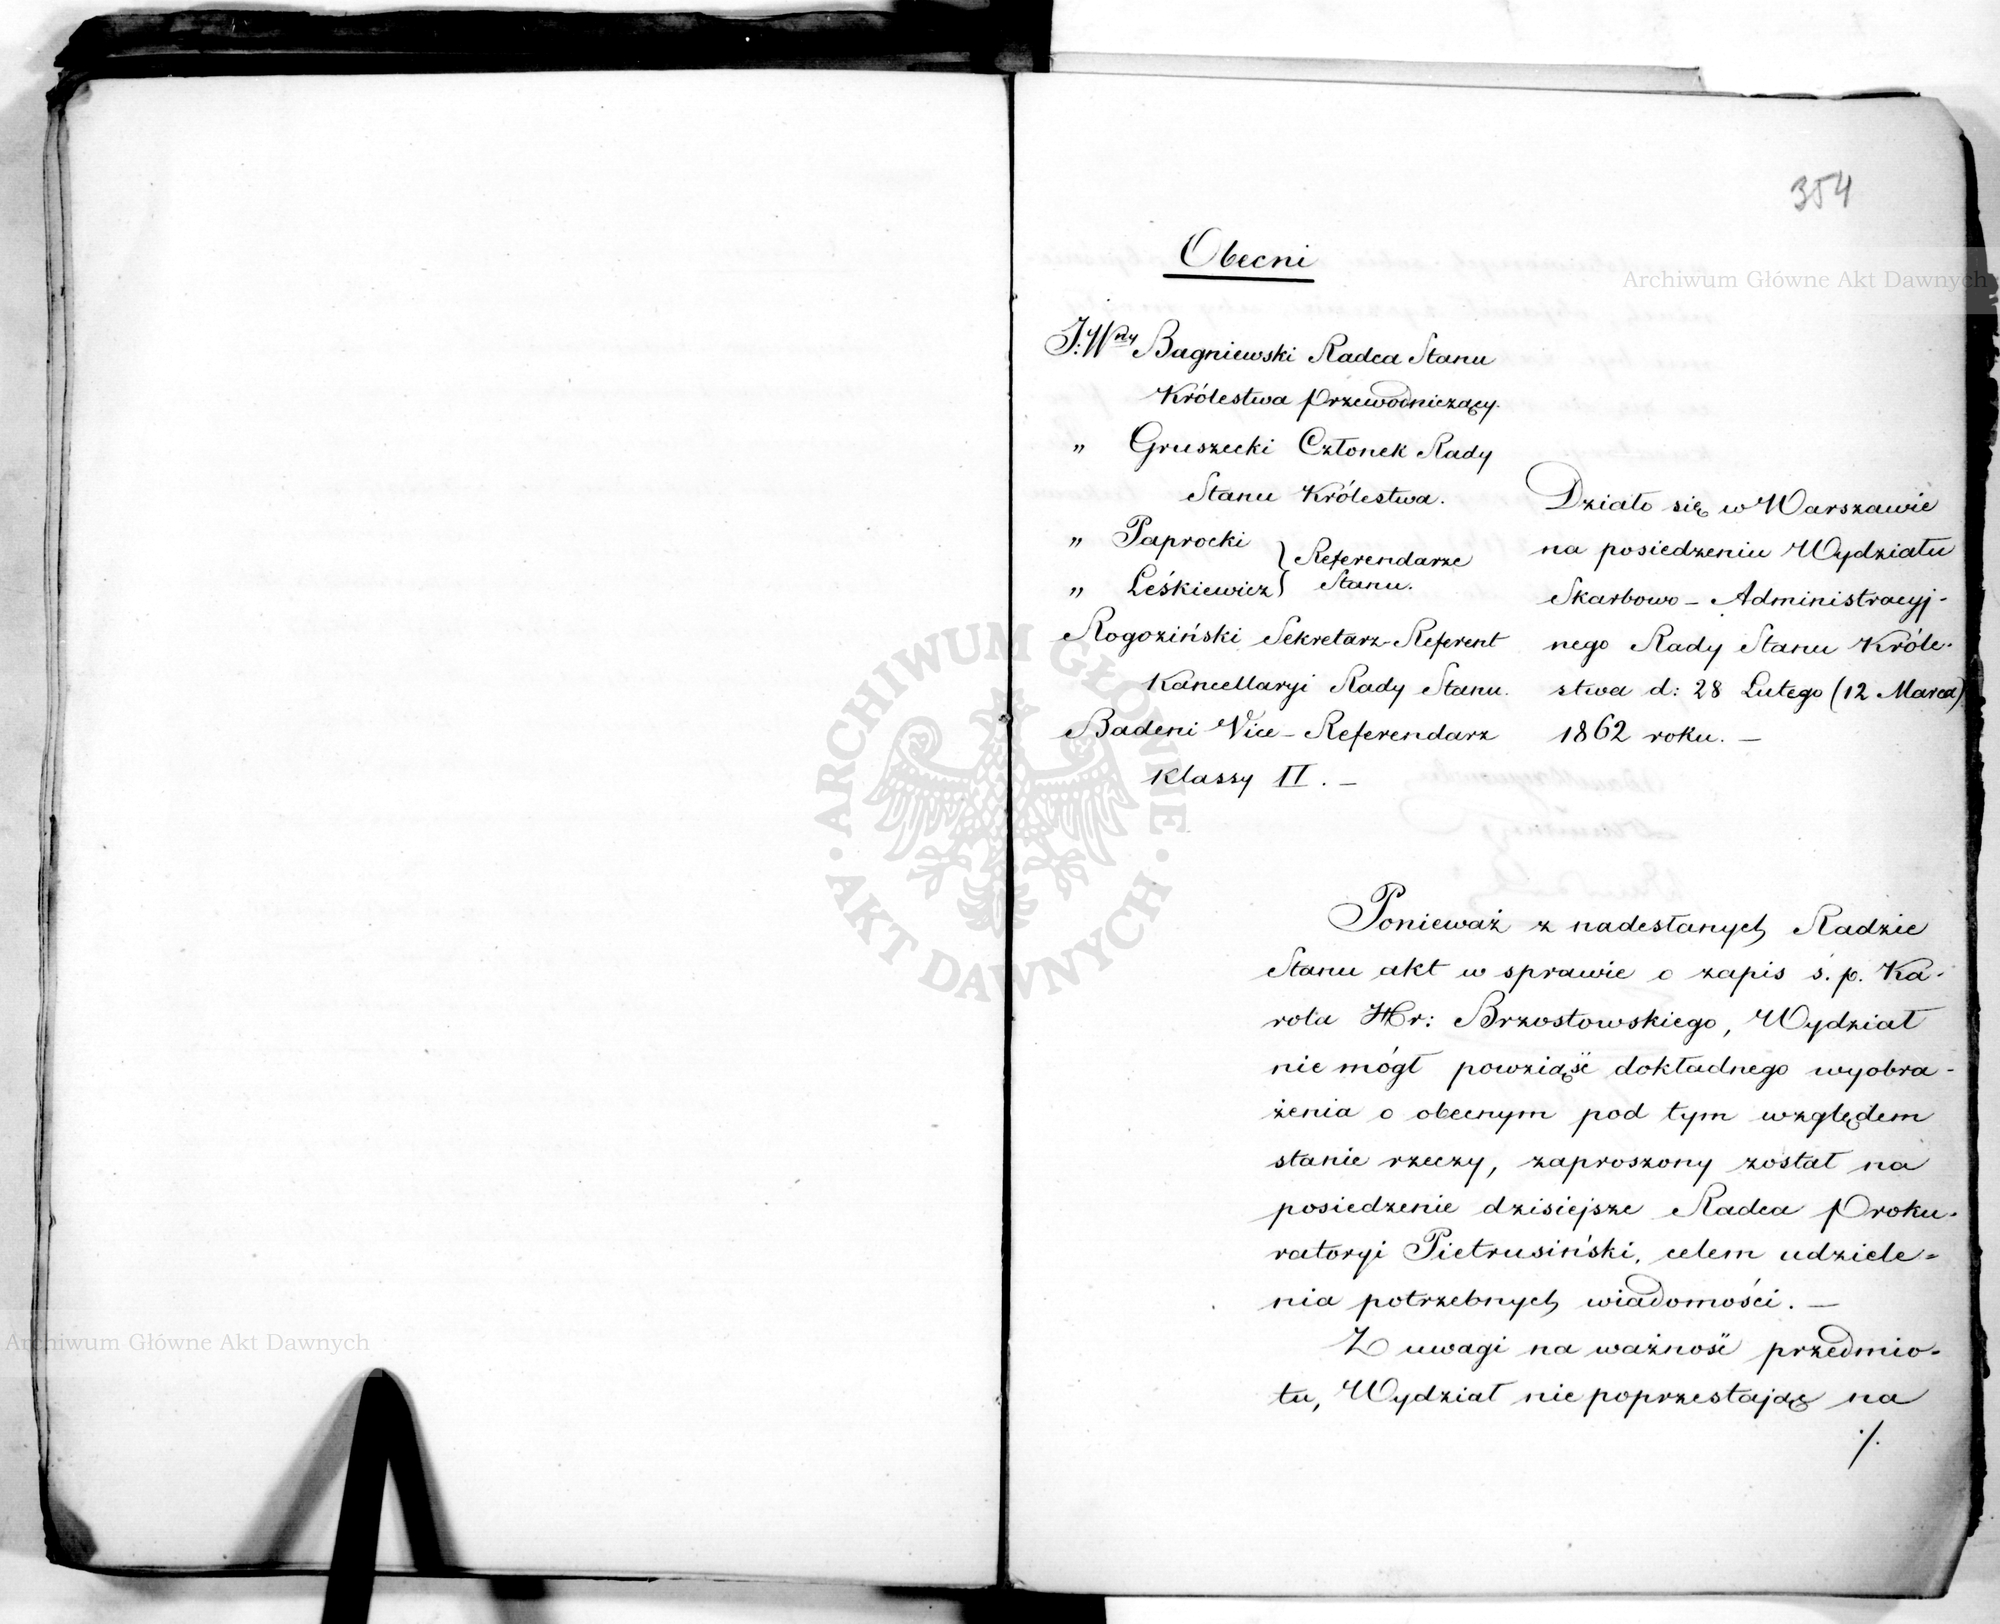 354
Obecni
J: Wny Bagniewski Radca Stanu
Królestwa Przewodniczący.
" Gruszecki Członek Rady
Stanu Królestwa.
" Paprocki
" Leśkiewicz } Referendarze
Stanu.
Rogoziński Sekretarz-Referent
Kancellaryi Rady Stanu.
Badeni Vice-Referendarz
Klassy II. —
Działo się w Warszawie
na posiedzeniu Wydziału
Skarbowo-Administracyj-
nego Rady Stanu Króle-
stwa d: 28 Lutego (12 Marca)
1862 roku. —
Ponieważ z nadesłanych Radzie
Stanu akt w sprawie o zapis ś. p. Ka-
rola Hr: Brzostowskiego, Wydział
nie mógł powziąść dokładnego wyobra-
żenia o obecnym pod tym względem
stanie rzeczy, zaproszony został na
posiedzenie dzisiejsze Radca Proku-
ratoryi Pietrusiński, celem udziele-
nia potrzebnych wiadomości. —
Z uwagi na ważność przedmio-
tu, Wydział nie poprzestając na
./.
Archiwum Główne Akt Dawnych
Archiwum Główne Akt Dawnych
ARCHIWUM GŁÓWNE AKT DAWNYCH